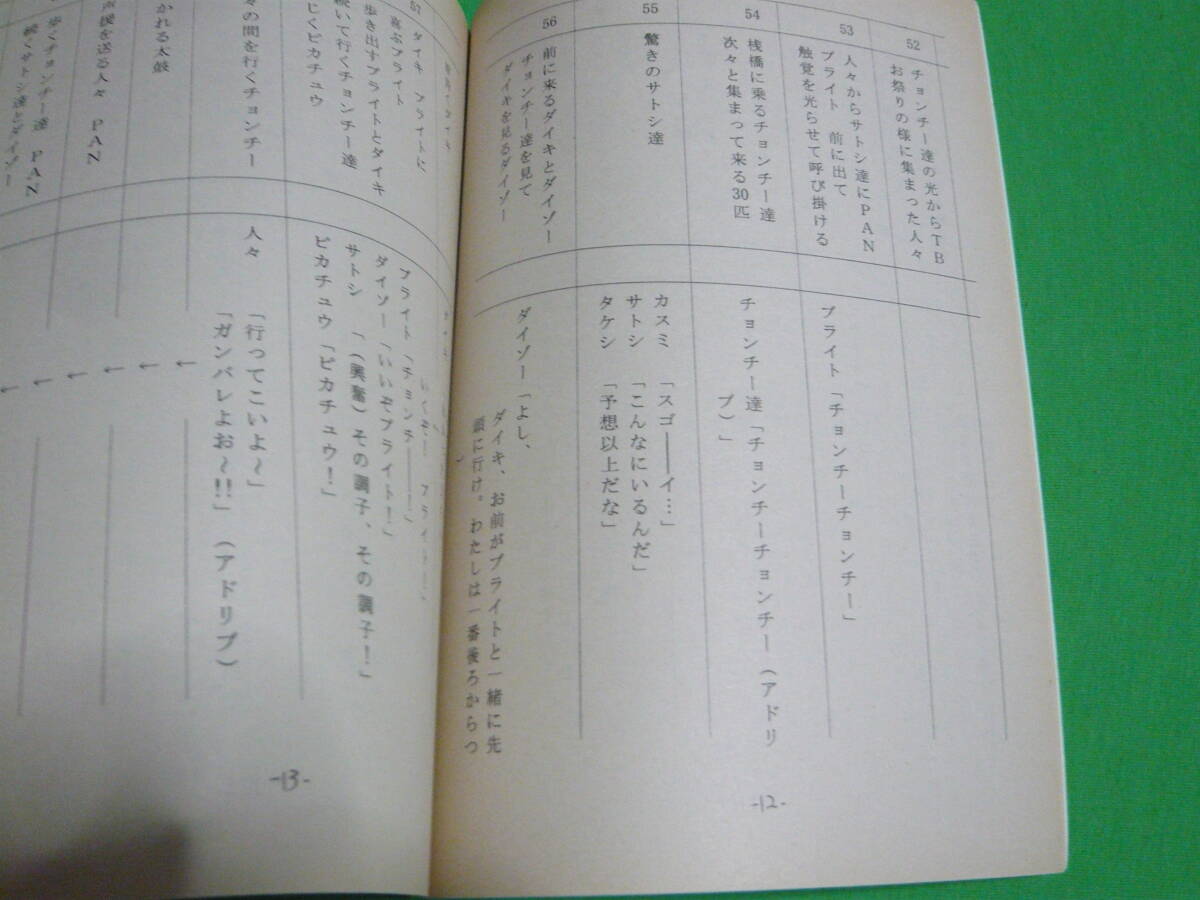 52
チョンチー達の光からTB
お祭りの様に集まった人々
53
人々からサトシ達にPAN
ブライト 前に出て
触覚を光らせて呼び掛ける
ブライト「チョンチーチョンチー」
54
桟橋に乗るチョンチー達
次々と集まって来る30匹
チョンチー達「チョンチーチョンチー(アドリ
ブ)」
55
驚きのサトシ達
カスミ 「スゴ――イ…」
サトシ 「こんなにいるんだ」
タケシ 「予想以上だな」
56
前に来るダイキとダイゾー
チョンチー達を見て
ダイキを見るダイゾー
ダイゾー「よし、
ダイキ、お前がブライトと一緒に先
頭に行け。わたしは一番後ろからつ
-12-
57
ダイキ ブライトに
喜ぶブライト
歩き出すブライトとダイキ
続いて行くチョンチー達
じくピカチュウ
いくぞ― ブライト―」
ブライト「チョンチ――!」
ダイゾー「いいぞブライト!」
サトシ 「(興奮)その調子、その調子!」
ピカチュウ「ピカチュウ!」
々の間を行くチョンチー
人々 「行ってこいよ~」
「ガンバレよお~!!」(アドリブ)
かれる太鼓
←
声援を送る人々 PAN
←
歩くチョンチー達 PAN
←
続くサトシ達とダイゾー
←
←
←
-13-